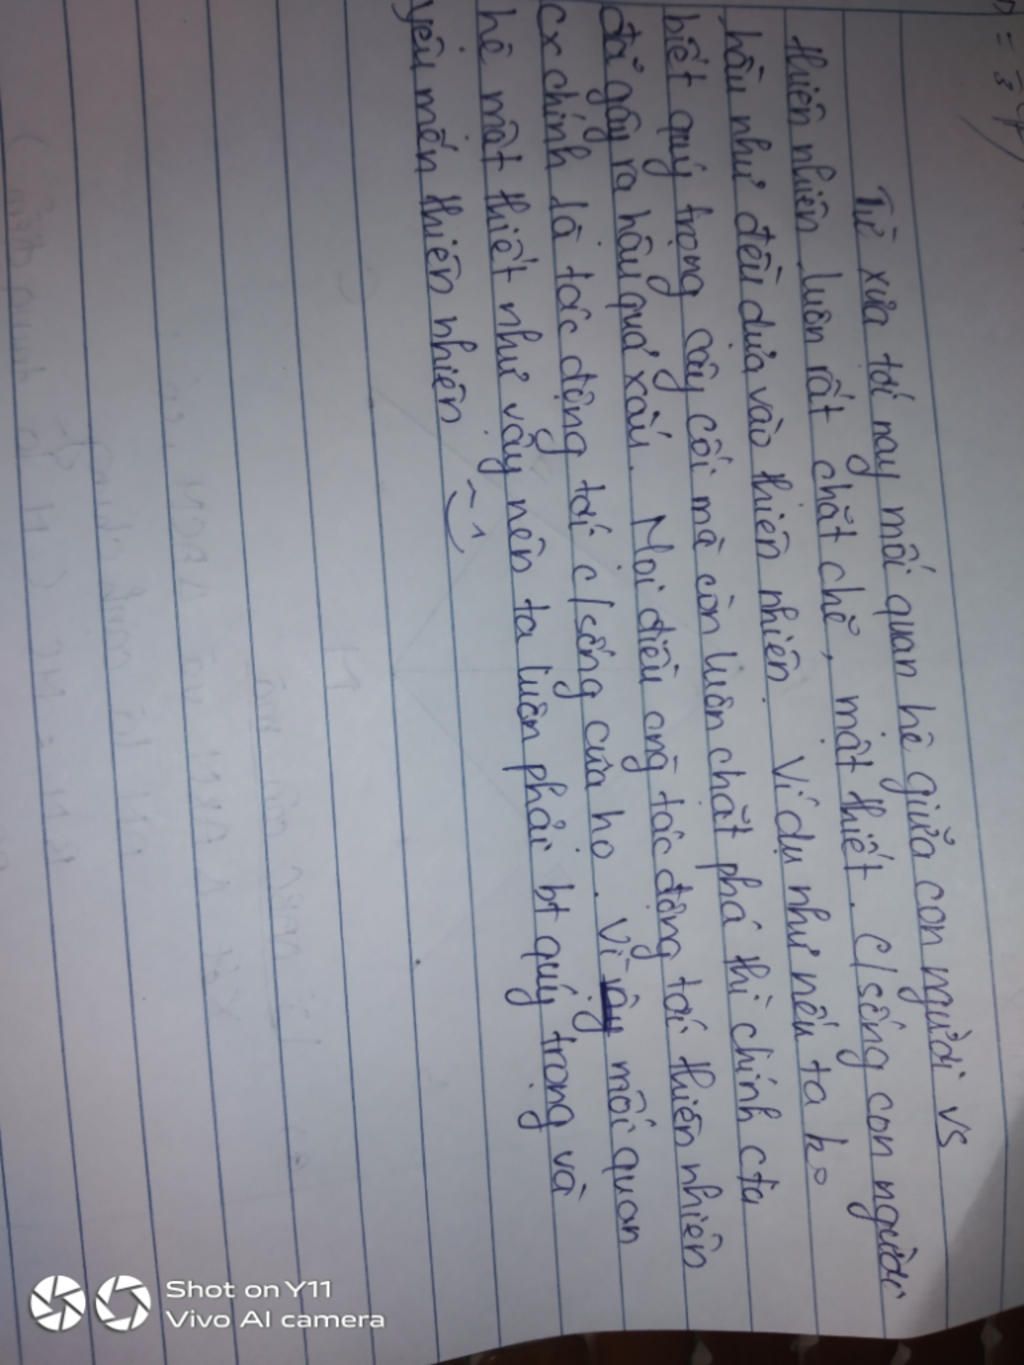 Từ xưa tới nay mối quan hệ giữa con người vs
thiên nhiên luôn rất chặt chẽ, mật thiết. c/sống con người
hầu như đều dựa vào thiên nhiên. Ví dụ như nếu ta ko
biết quý trọng cây cối mà còn luôn chặt phá thì chính cta
đã gây ra hậu quả xấu. Mọi điều cng tác động tới thiên nhiên
cx chính là tác động tới c/sống của họ. Vì mối quan
hệ mật thiết như vậy nên ta luôn phải bt quý trọng và
yêu mến thiên nhiên
Shot on Y11
Vivo AI camera